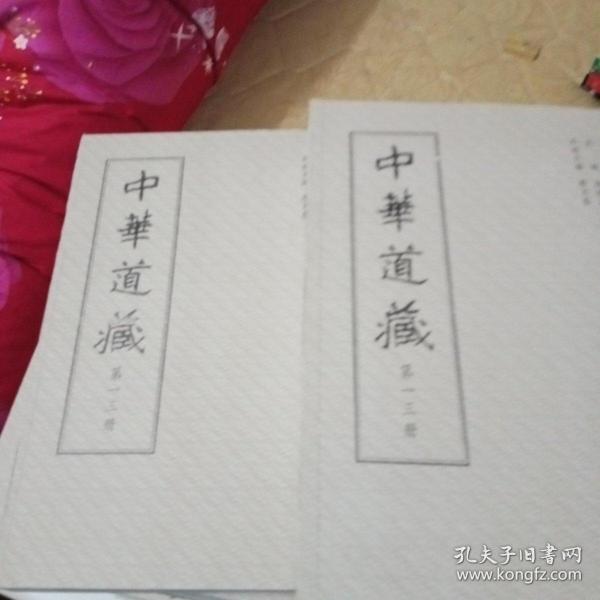 中華道藏
第一三册
中華道藏
第一三册
孔夫子旧书网
www.kongfz.com